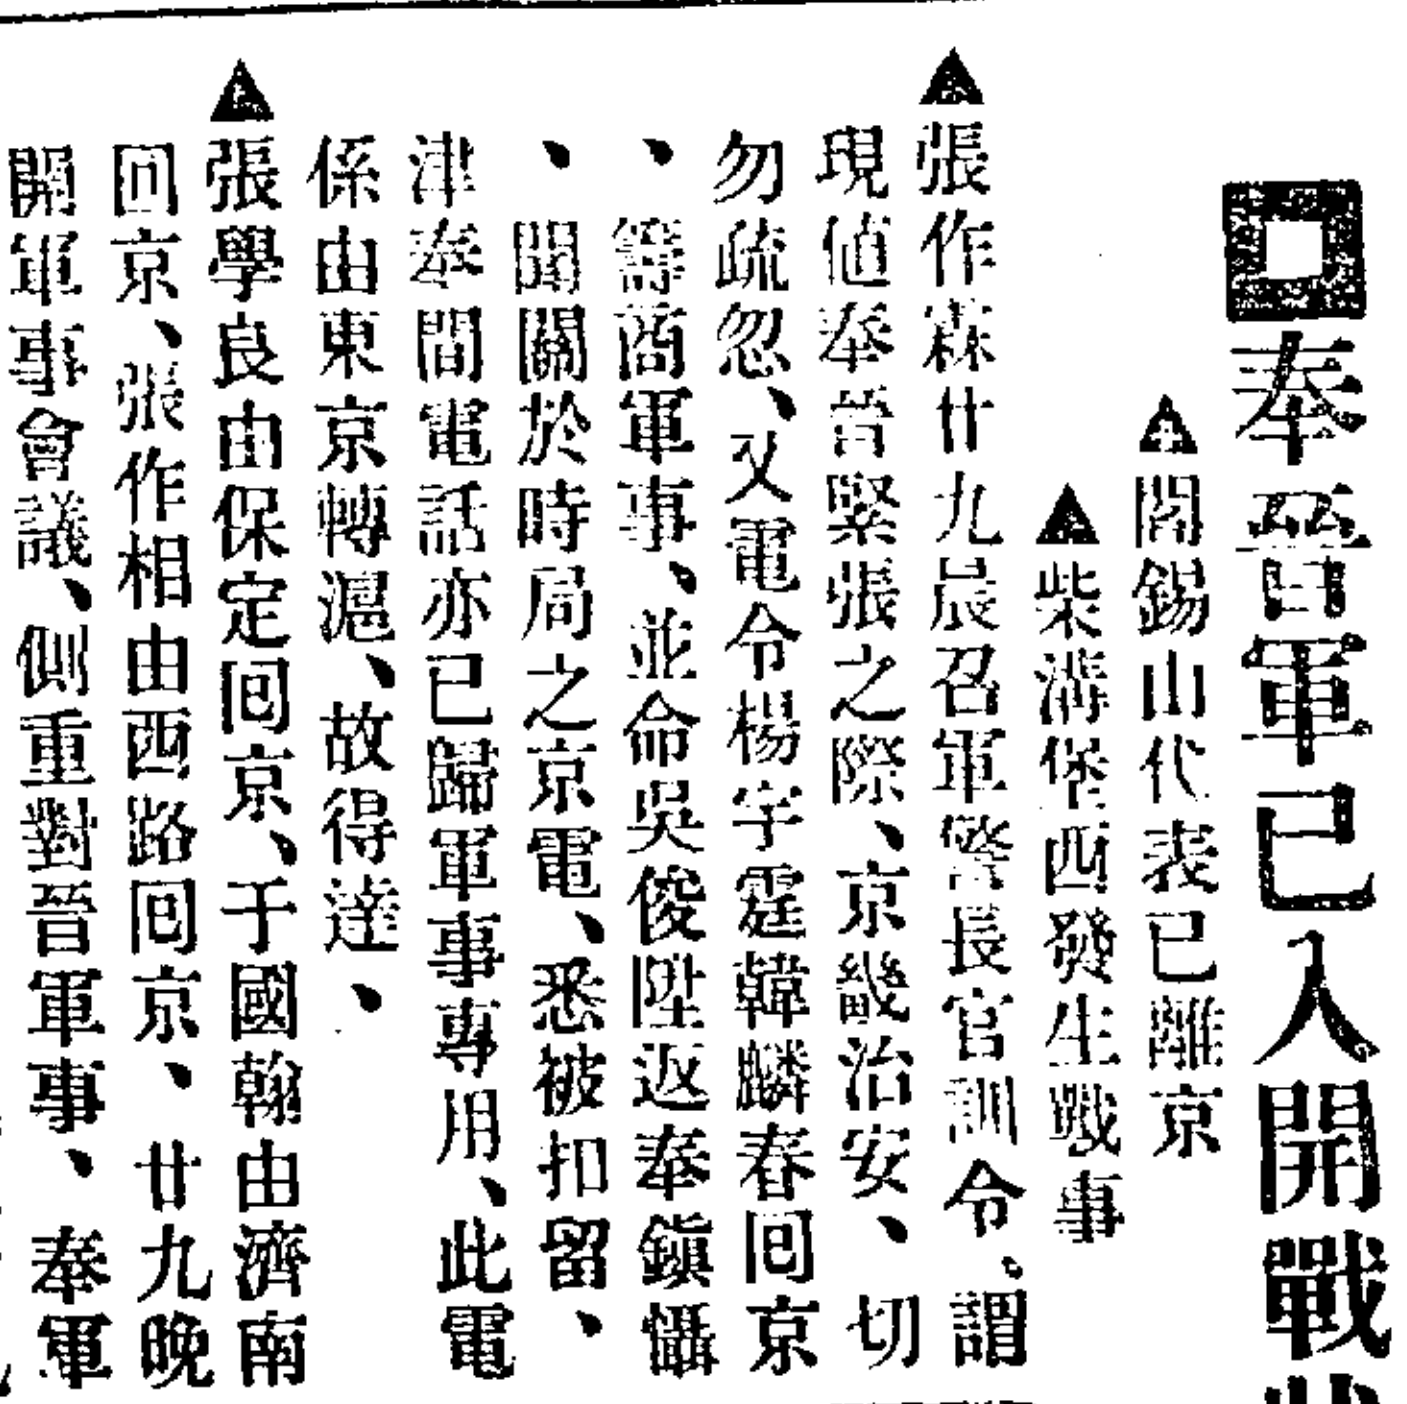 奉晉軍已入開戰狀
▲閻錫山代表已離京
▲柴溝堡西發生戰事
▲張作霖廿九晨召軍警長官訓令、謂
現値奉晉緊張之際、京畿治安、切
勿疏忽、又電令楊宇霆韓麟春囘京
、籌商軍事、並命吳俊陞返奉鎭懾
、聞關於時局之京電、悉被扣留、
津奉間電話亦已歸軍事專用、此電
係由東京轉滬、故得達、
▲張學良由保定囘京、于國翰由濟南
回京、張作相由西路囘京、廿九晚
開軍事會議、側重對晉軍事、奉軍